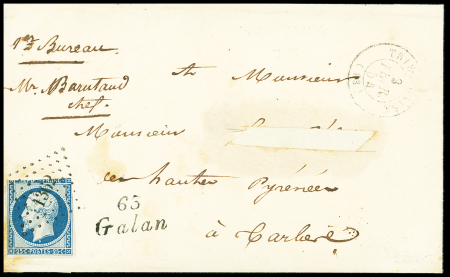 1er Bureau
Mr Barutaud
chef
A Monsieur
Monsieur
des hautes Pyrénées
à Tarbes
65
Galan
25 C POSTES 25 C